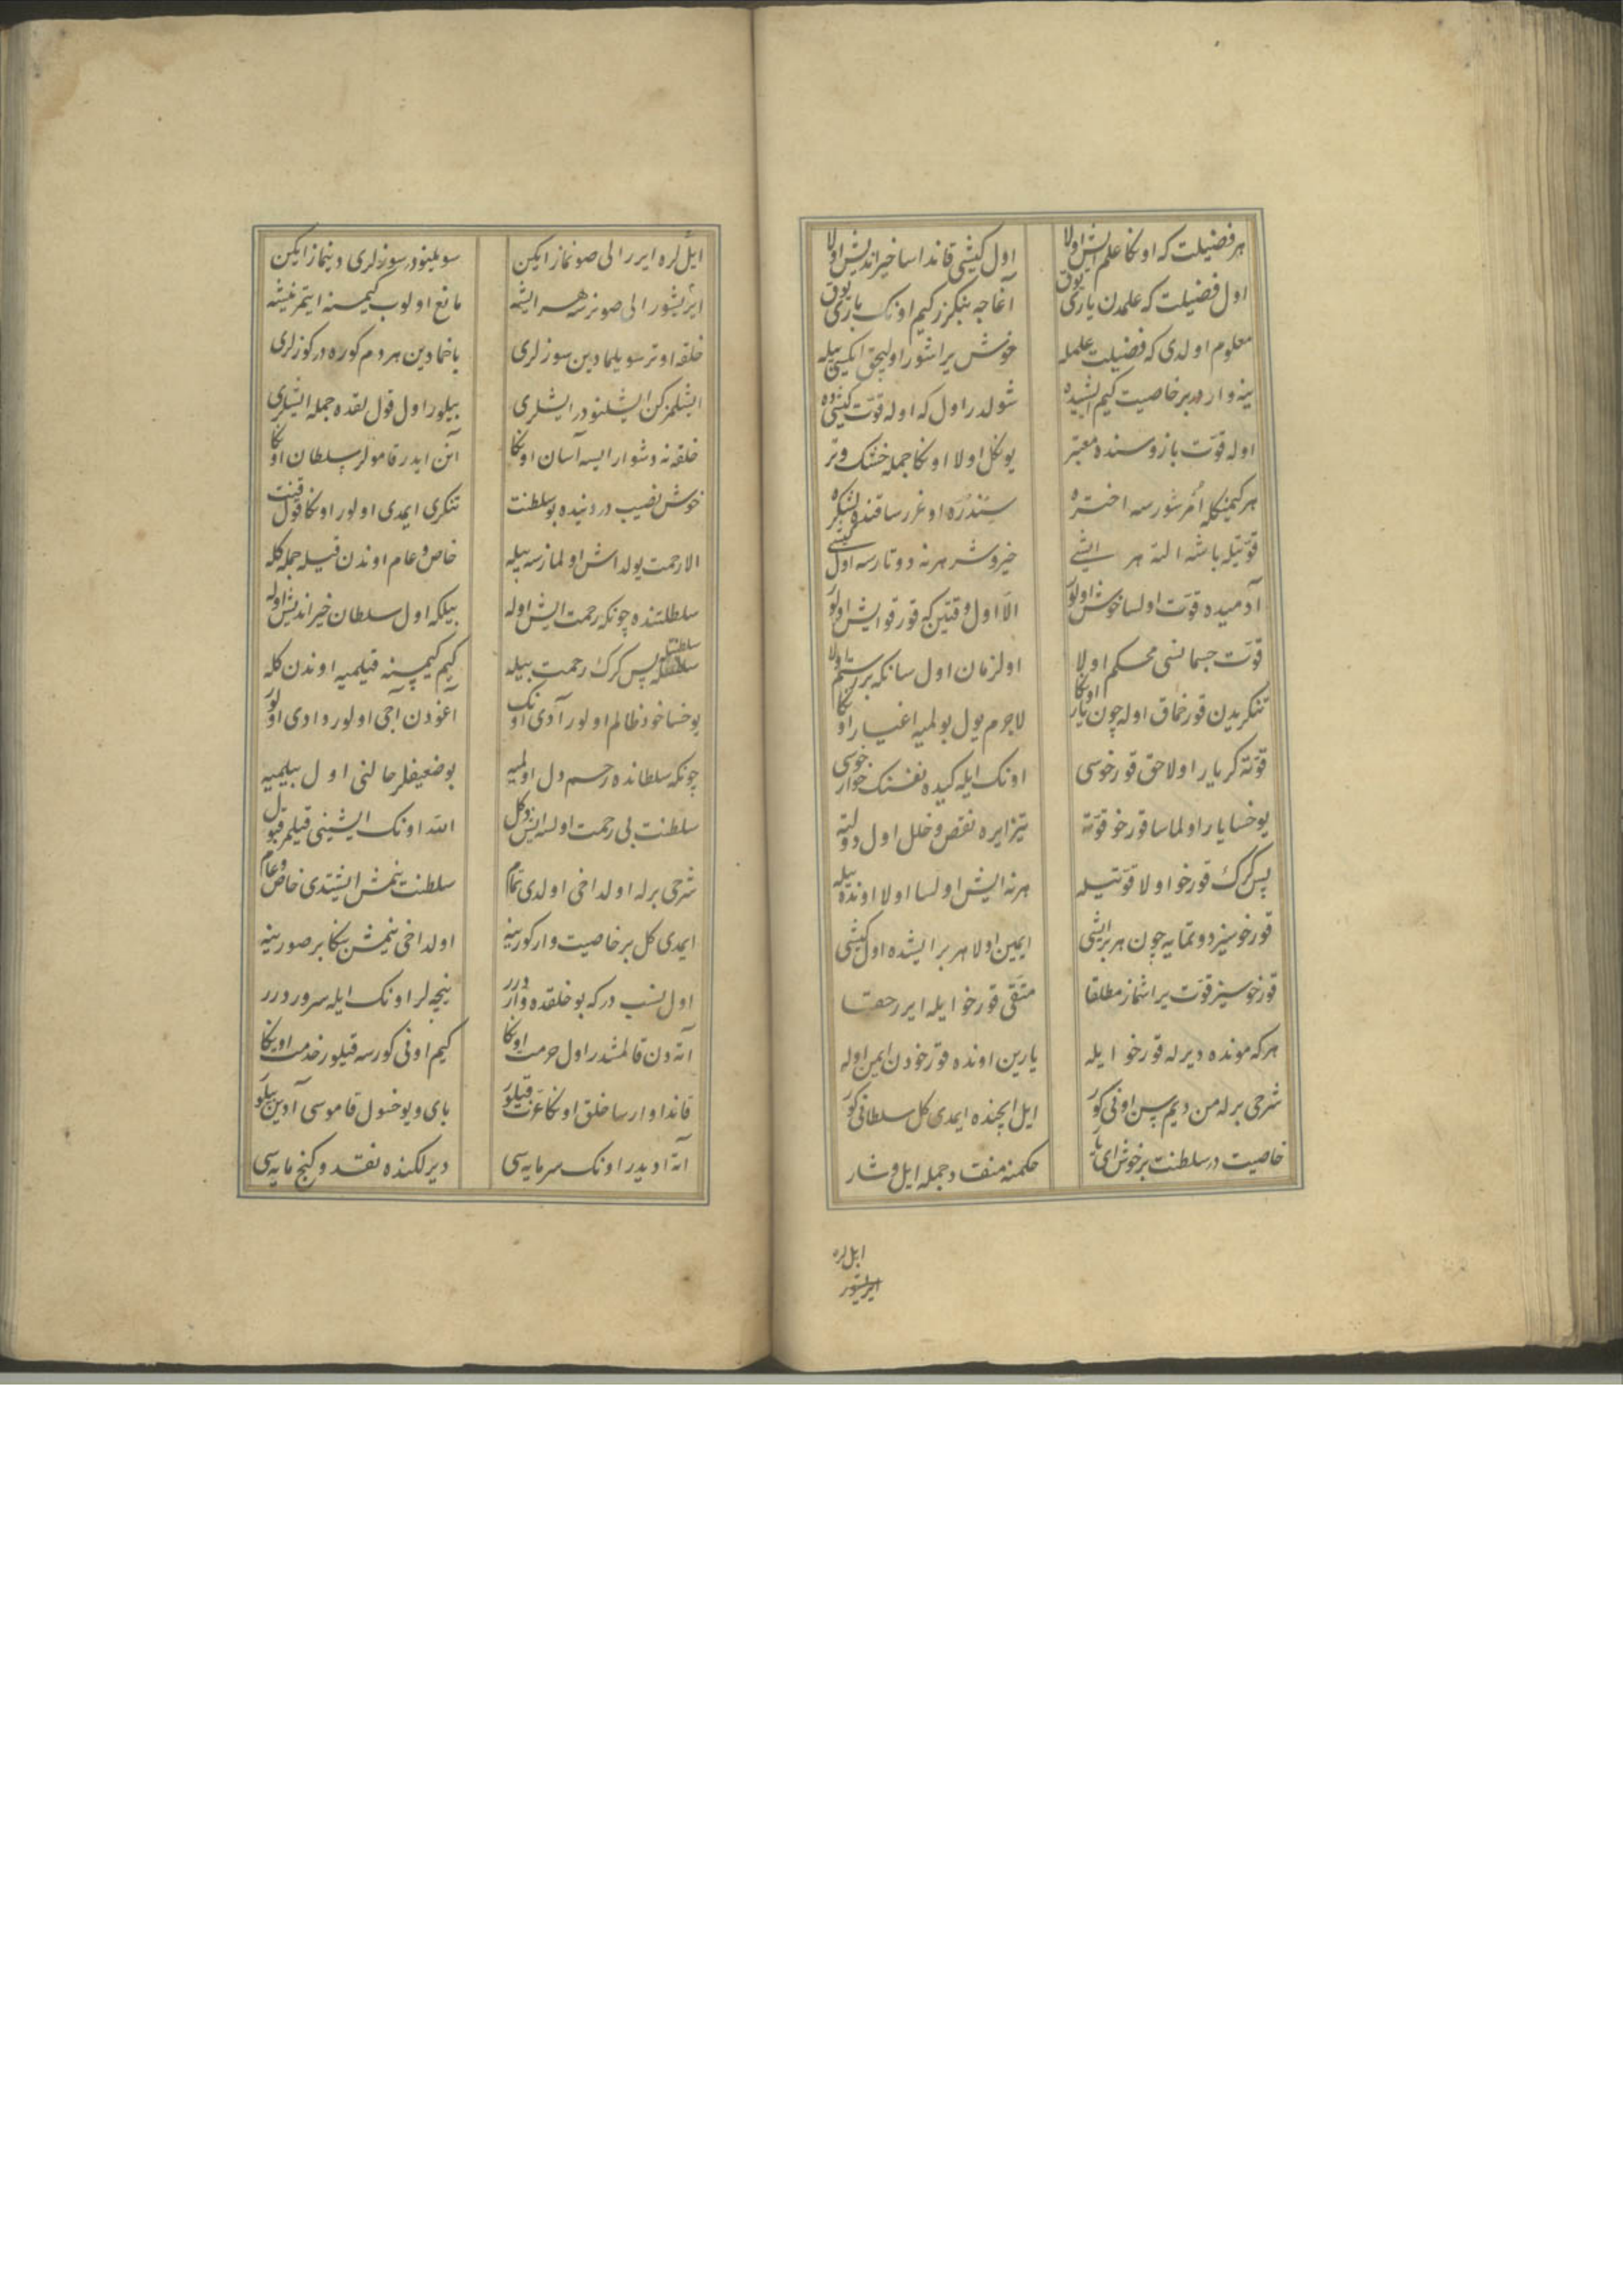 هر فضیلت که اونکا علم ایش اولا اول کیشی قاندا اسا خیراندیش اولا
اول فضیلت که علمدن یاری یوق آغاجه بنکزر کیم اونک باری یوق
معلوم اولدی که فضیلت علمله خوش یراشور اولیجق ایکیسی بیله
ینه واردر بر خاصیت کیم ایشیده شولدر اول که اوله قوّت کیشیده
اوله قوّت بازوسنده معتبر یونکل اولا اونکا جمله خشک و تر
هر کیمنکله اُمرشورسه اختره سِندُره اوغررسا قنده لشکره
قوّتیله باشه التة هر ایشی خیر و شر هر نه دوتارسه اول کیشی
آدمیده قوّت اولسا خوش اولور الّا اول وقتین که قورقو ایش اولور
قوّت جسمانسی محکم اولا اولزمان اول سانکه بر رستم اولا
تنکریدن قورخماق اوله چون یار اونکا لاجرم یول بولمیه اغیار اونکا
قوّته کر یار اولا حق قورخوسی اونک ایله کیده نفسنک خوارخوسی
یوخسا یار اولماسا قورخو قوّته تیز ایره نقص و خلل اول دولته
پس کرک قورخو اولا قوّتیله هر نه ایش اولسا اولا اونده بیله
قورخوسیز دوتمایه چون هر بر ایشی ایمین اولا هر بر ایشده اول کیشی
قورخوسیز قوّت یراشماز مطلقا متّقی قورخو ایله ایرر حقا
هر که مونده دیرله قورخو ایله یارین اونده قورخودن ایمن اوله
شرحی برله من دیم پس اونی کور ایل ایچنده ایمدی کل سلطانی کور
خاصیت در سلطنت بر خوش ای یار حکمنه منقاد جمله ایل و شار
ایل لره
ایریشور
ایل لره ایرر الی صونماز ایکن سویلینور سوزلری دینماز ایکن
ایریشور الی صونرسه هر ایشه مانع اولوب کیمسنه ایتمز نیشه
خلقه اوتر سویلمادین سوزلری باخمادین هر دم کوره در کوزلری
ایشلمزکن ایشلنور ایشلری بیلور اول قول لقده جمله ایشلری
خلقه نه دشوار ایسه آسان اونکا آنن ایدر قامولر سلطان اونکا
خوش نصیب در دنیده بو سلطنت تنکری ایمدی اولور اونکا قول قینت
الا رحمت یولداش اولمازسه بیله خاص و عام اوندن قیله جمله کله
سلطلتنده چونکه رحمت ایش اوله بیلکه اول سلطان خیراندیش اوله
سلطنتله پس کرک رحمت بیله کیم کیمسنه قیلمیه اوندن کله
یوخسا خود ظالم اولور آدی اونک آغودن آجی اولور دادی اولور
چونکه سلطانده رحم دل اولمیه بو ضعیفلر حالنی اول بیلمیه
سلطنت بی رحمت اولسه ایش دکل الله اونک ایشینی قیلمز قبول
شرحی برله اولداخی اولدی تمام سلطنت نیمش ایشتدی خاص و عام
ایمدی کل بر خاصیت وار کورینه اولداخی نیمش بنکا بر صورینه
اول نسب در که بو خلقده وار درر نیچه لر اونک ایله سرور درر
اته دن قالمشدر اول حرمت اونکا کیم اونی کورسه قیلور خدمت اونکا
قاندا وارسا خلق اونکا عزّت قیلور بای و یوخسول قاموسی آدین بیلور
اته ادیدر اونک سرمایه‌سی دیرلکنده نقد و کنج مایه‌سی